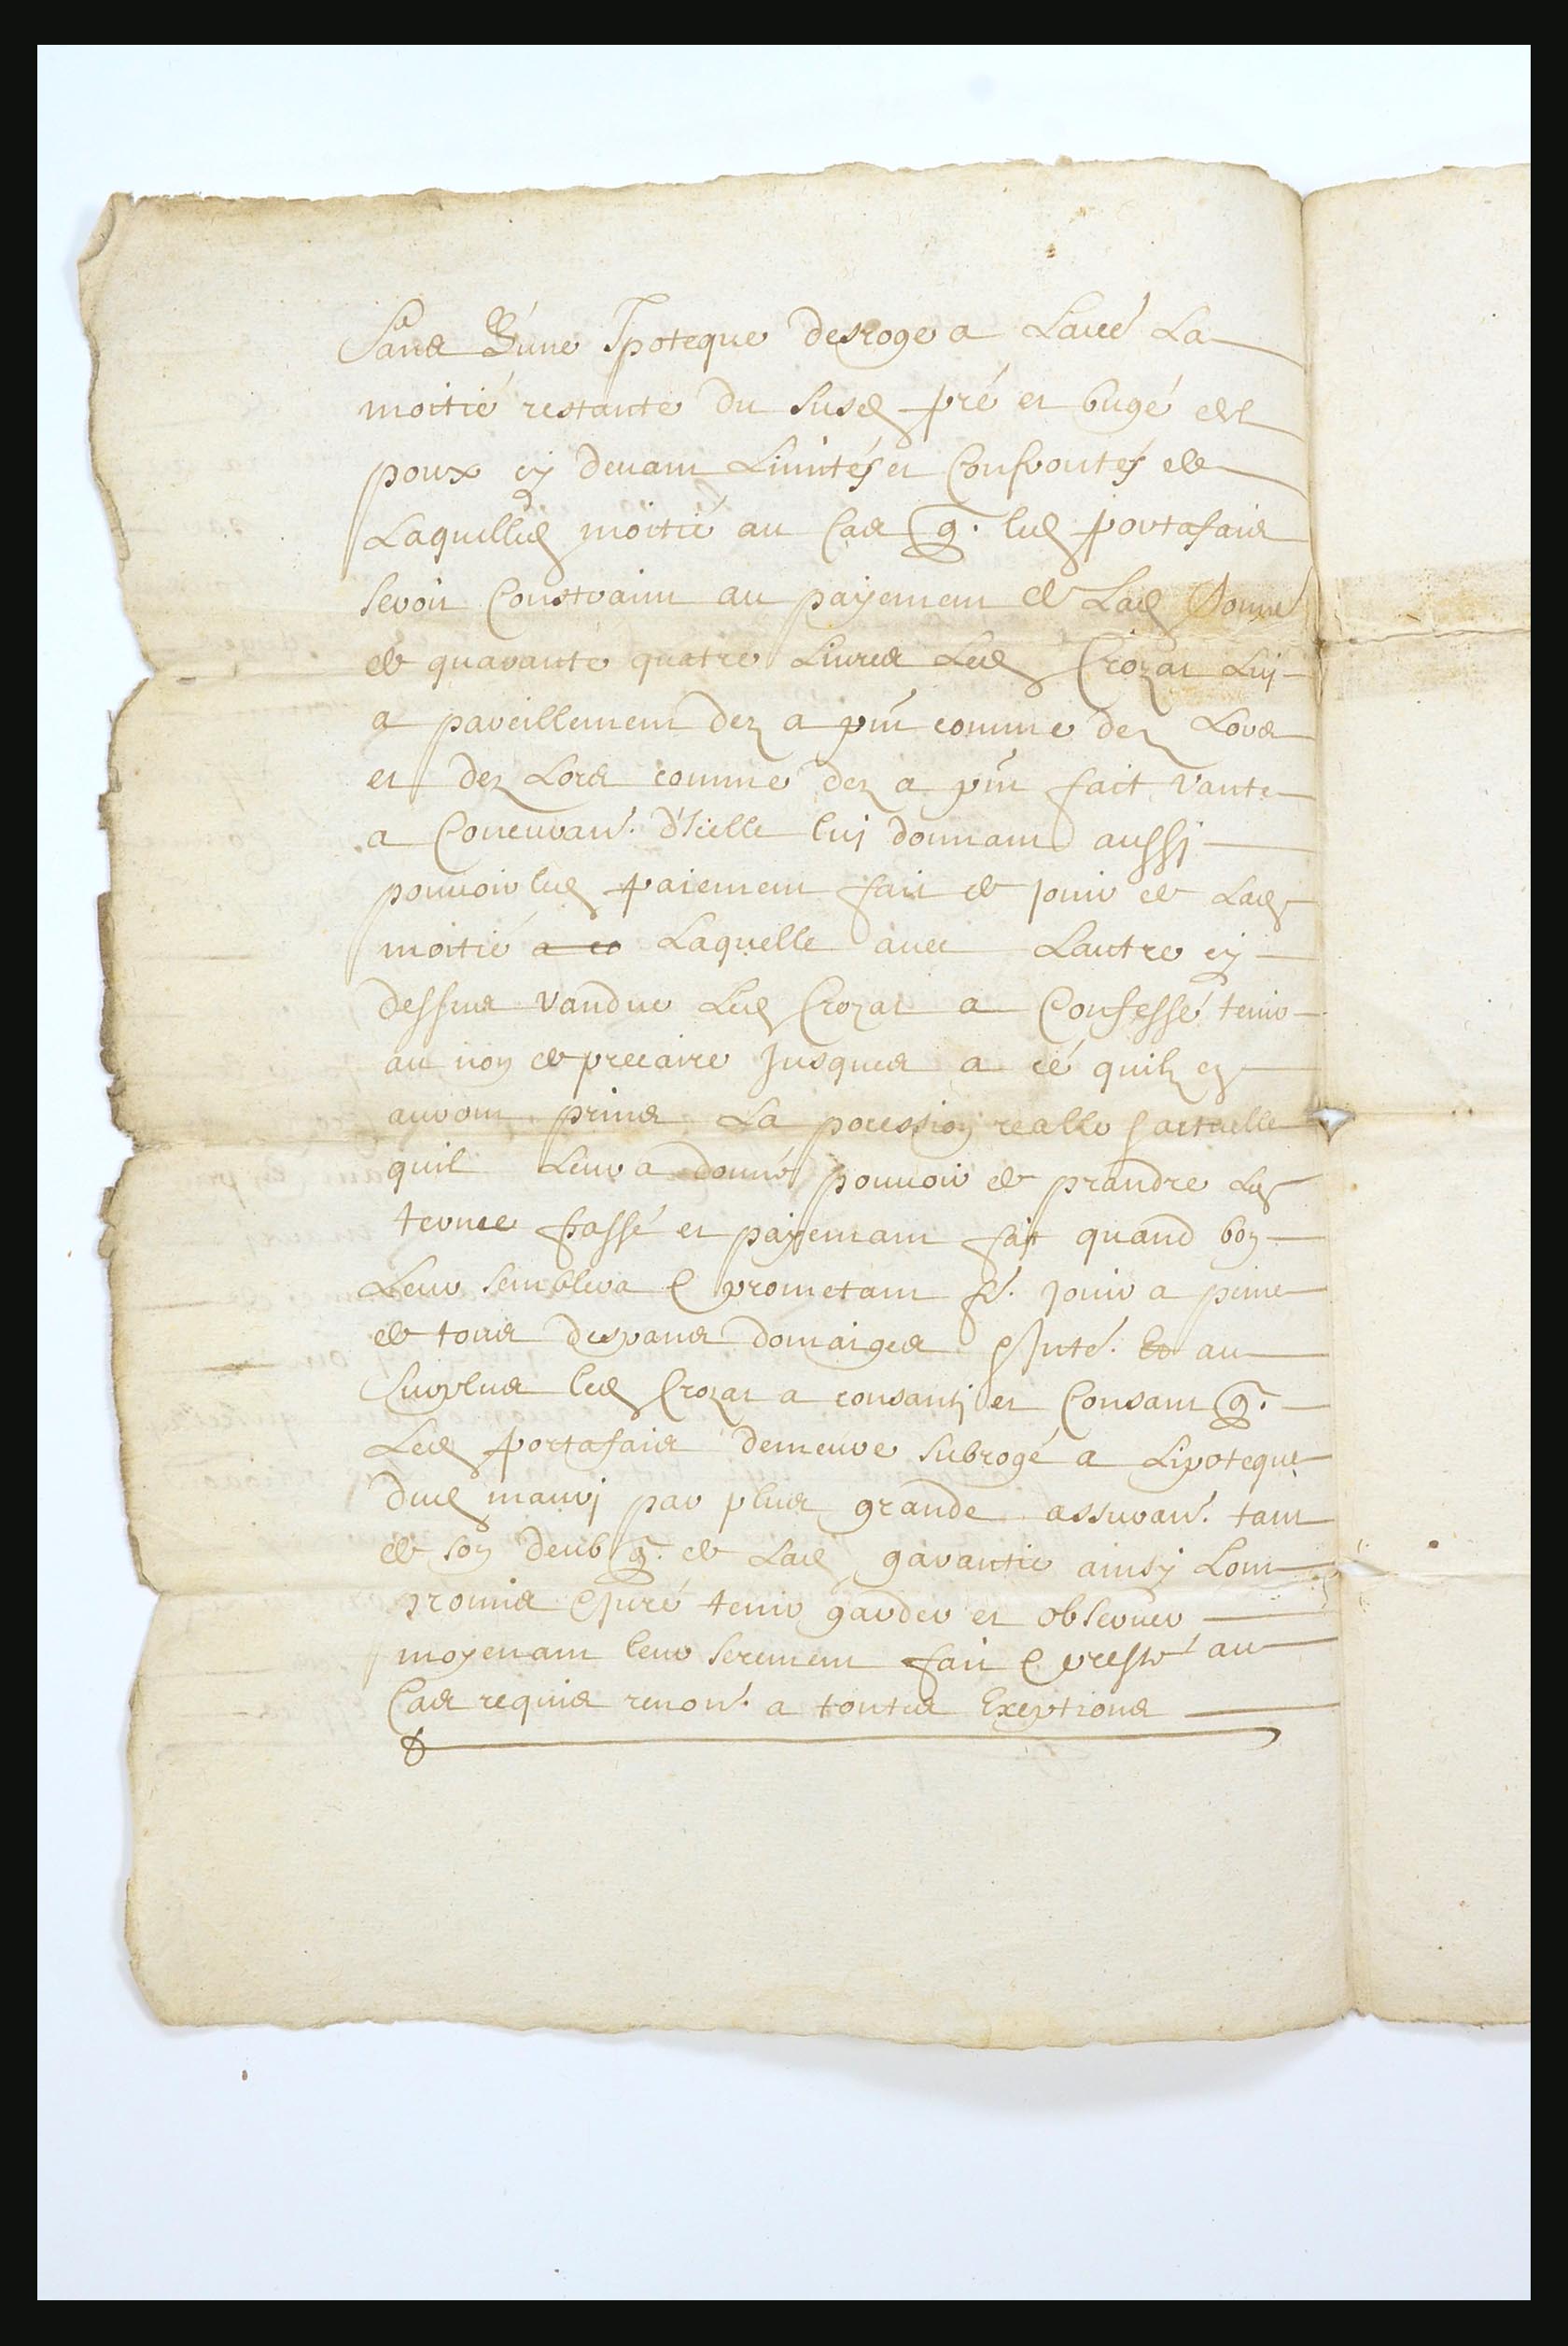 Sans Qune Ipoteque desroge a Lautre La
moitié restante du susd pré et bugé est
poux cy devant Limités et Confrontés de
Laquelled moitié au Cas q. led portafais
seroit Constraint au payement de Lad Somme
de quarante quatre Livres Led Crozat Luy
a pareillement dez a pnt comme dez Lors
et dez Lors comme dez a pnt fait vante
a Concuran. d'Icelle luj donnant aussj
pouvoir led paiement fait de jouir de Lad
moitié Laquelle avec Lautre cy
dessus vandue Led Crozat a Confessé tenir
au nom de precaire Jusques a cé quilz en
auront prins La pocession realle & actuelle
quil Leur a donné pouvoir de prandre Led
terme passé et payemant fait quand bon
Leur semblera & prometant fe. jouir a peine
de tous despans domaiges & Inté. au
surplus led Crozat a consantj et Consant q.
Led portafais demeure subrogé a Lipoteque
dud maurj par plus grande assuran. tant
de son deub q. de Lad garantie ainsy Lont
promis & juré tenir garder et observer
moyenant leur serement fait & presté au
Cas requis renon. a toutes Exeptions